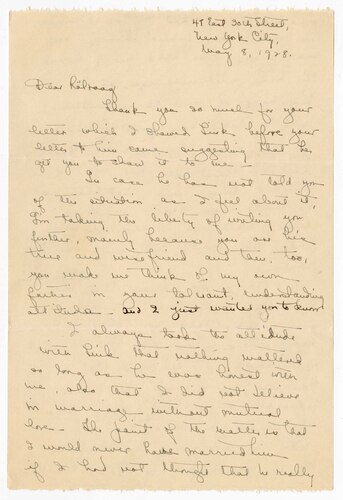 48 East 30th Street,
New York City,
May 8, 1928.
Dear Rölvaag
Thank you so much for your
letter which I showed Link before your
letter to him came suggesting that he
get you to show it to me -
In case he has not told you
of the situation as I feel about it,
I'm taking the liberty of writing you
further, mainly because you are his
true and wise friend and then, too,
you made me think of my own
father in your tolerant, understanding
attitude - and I just wanted you to know
I always took the attitude
with Link that nothing mattered
so long as he was honest with
me, also that I did not believe
in marriage without mutual
love - The point of the matter is that
I would never have married him
if I had not thought that he really